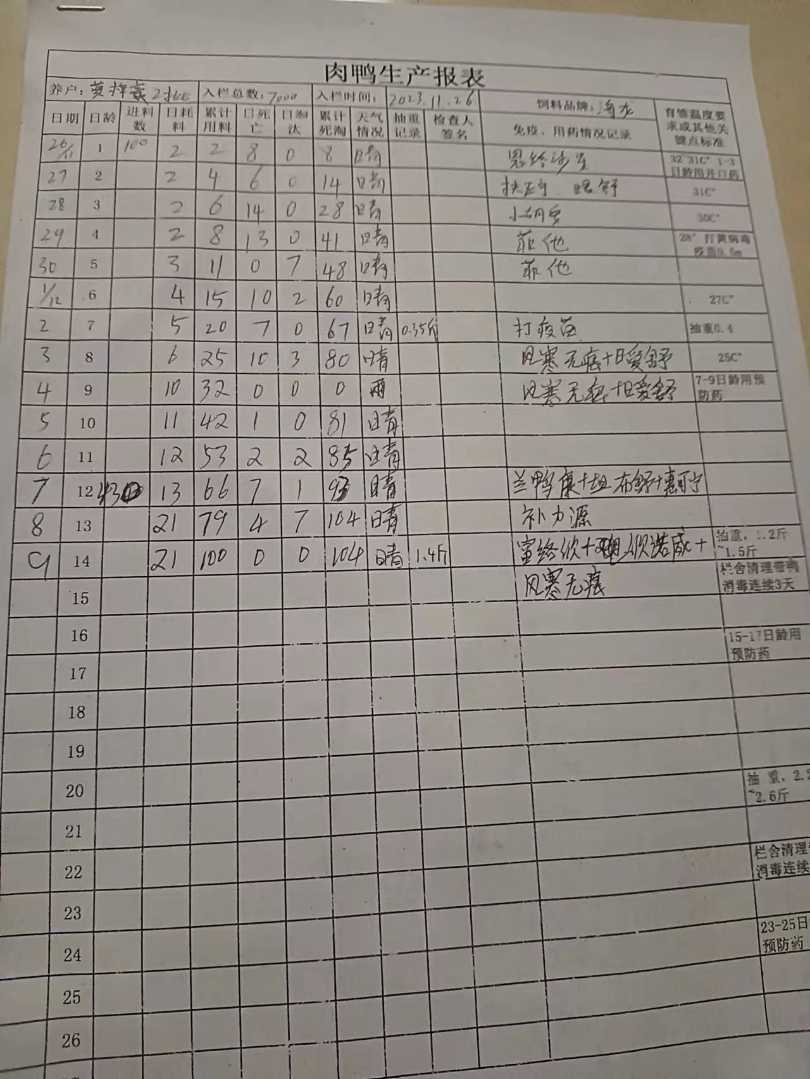 肉鸭生产报表
养户: 黄祥 入栏总数: 7000 入栏时间: 2023.11.26 饲料品牌: 海龙 育雏温度要求或其他关键点标准
日期 日龄 进料数 日耗料 累计用料 日死亡 日淘汰 累计死淘 天气情况 抽重记录 检查人签名 免疫、用药情况记录
26/11 1 100 2 2 8 0 8 晴 32 31C° 1-3日龄用开口药
27 2 2 4 6 0 14 晴 舒 31C°
28 3 2 6 14 0 28 晴 30C°
29 4 2 8 13 0 41 晴 菲他 28° 打黄病毒疫苗0.8m
30 5 3 11 0 7 48 晴 菲他
1/12 6 4 15 10 2 60 晴 27C°
2 7 5 20 7 0 67 晴 0.35斤 打疫苗 抽重0.4
3 8 6 25 10 3 80 晴 风寒无痕+日爱舒 25C°
4 9 10 32 0 0 0 雨 风寒无痕+日爱舒 7-9日龄用预防药
5 10 11 42 1 0 81 晴
6 11 12 53 2 2 85 晴
7 12 430 13 66 7 1 93 晴 兰鸭康+
8 13 21 79 4 7 104 晴 补力源
9 14 21 100 0 0 104 晴 1.4斤 欣诺威+ 抽重, 1.2斤~1.5斤
15 风寒无痕 栏舍清理带鸭消毒连续3天
16 15-17日龄用预防药
17
18
19
20 抽重, 2.2~2.6斤
21
22 栏舍清理 消毒连续
23
24 23-25日 预防药
25
26